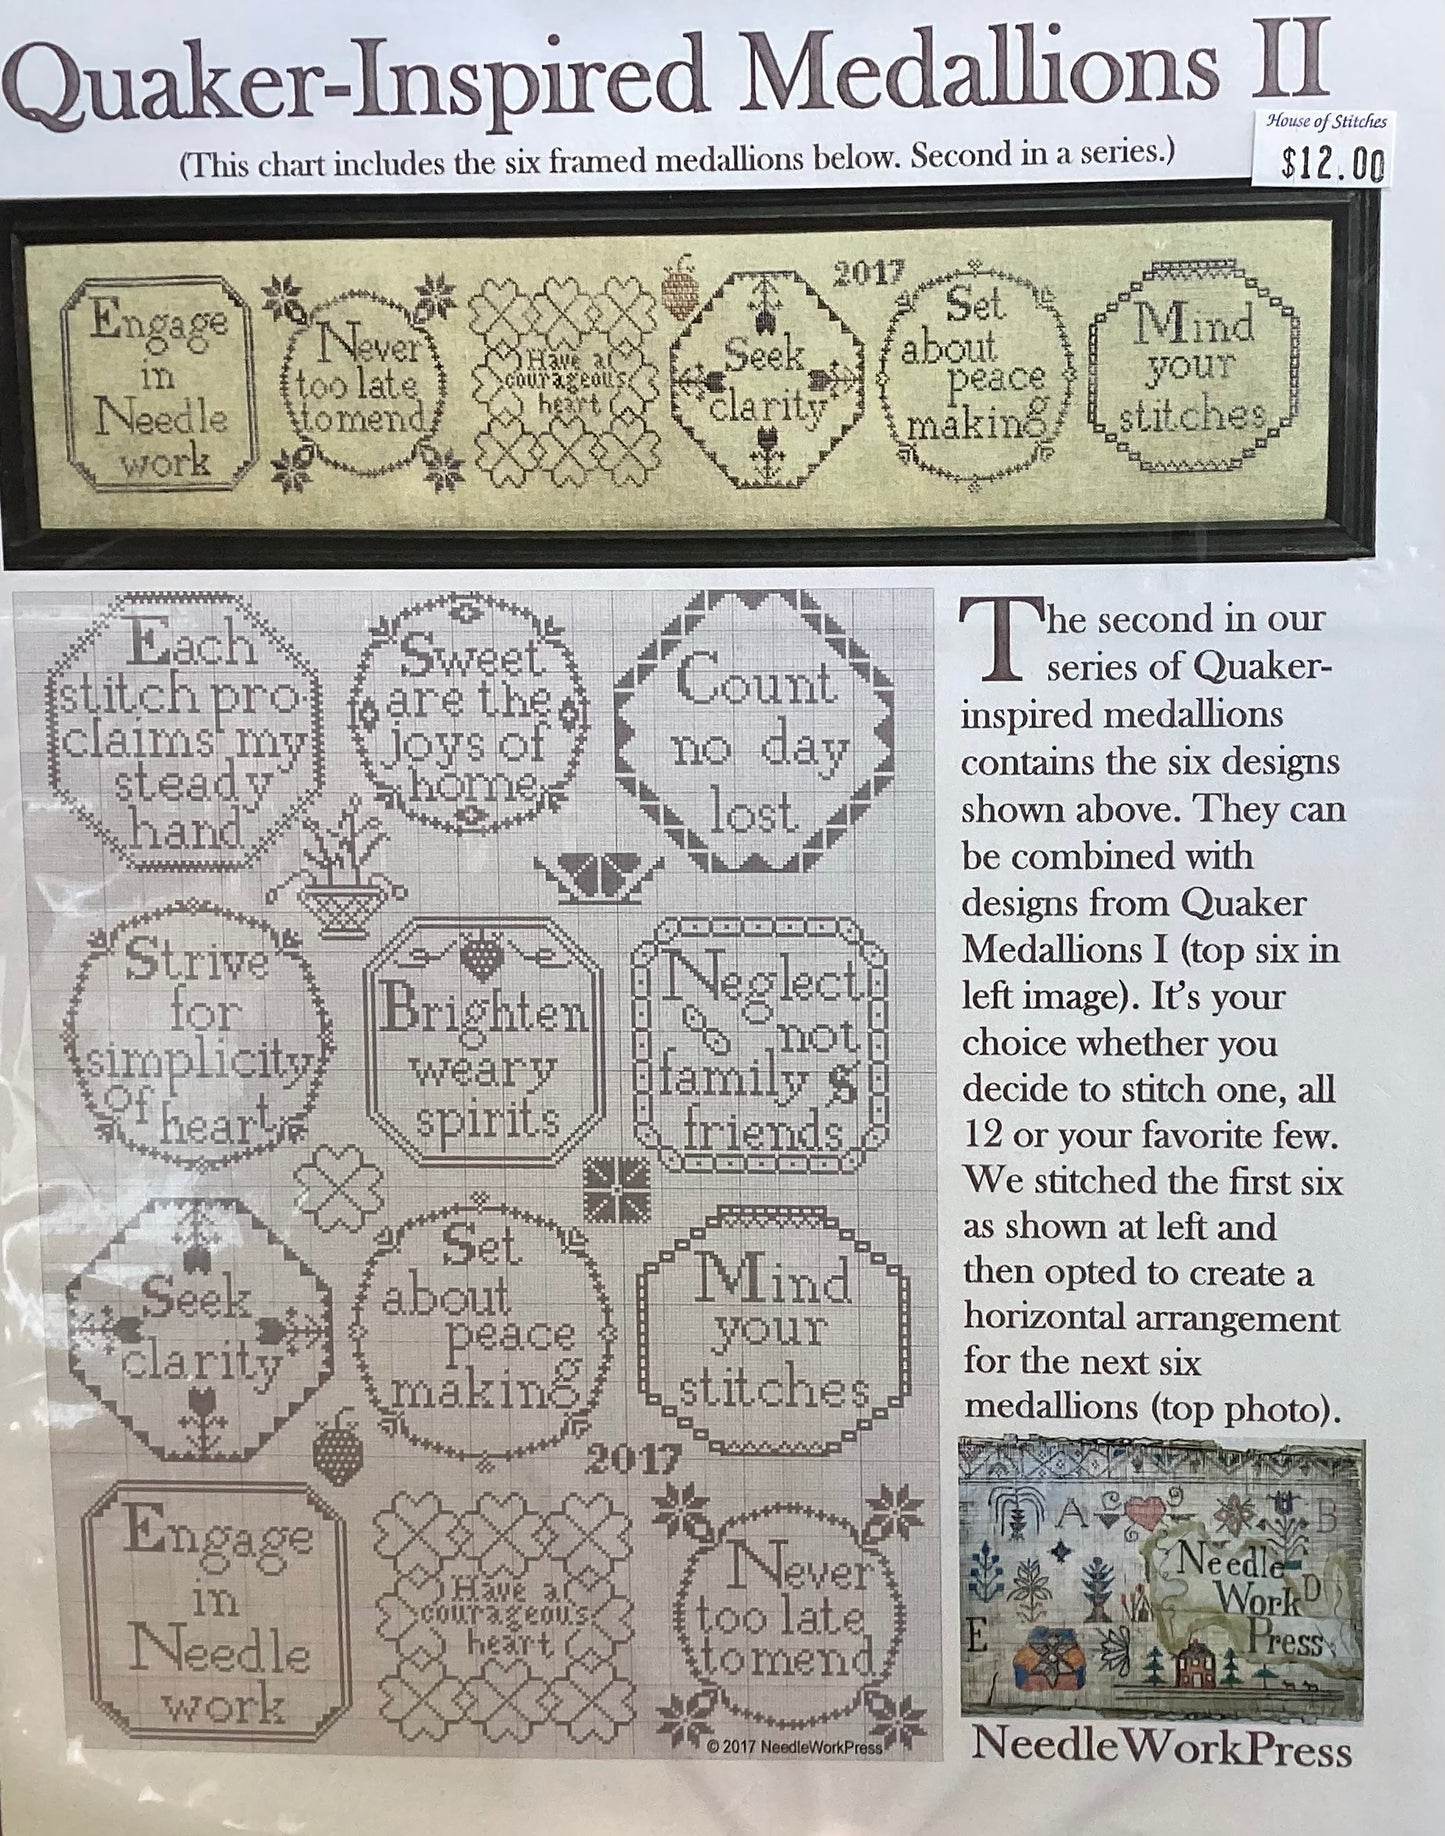 Quaker-Inspired Medallions II
House of Stitches
$12.00
(This chart includes the six framed medallions below. Second in a series.)
Engage
in
Needle
work
Never
too late
to mend
Have a
courageous
heart
Seek
clarity
2017
Set
about
peace
making
Mind
your
stitches
Each
stitch pro-
claims my
steady
hand
Sweet
are the
joys of
home
Count
no day
lost
Strive
for
simplicity
of heart
Brighten
weary
spirits
Neglect
not
family &
friends
Seek
clarity
Set
about
peace
making
Mind
your
stitches
2017
Engage
in
Needle
work
Have a
courageous
heart
Never
too late
to mend
© 2017 NeedleWorkPress
The second in our
series of Quaker-
inspired medallions
contains the six designs
shown above. They can
be combined with
designs from Quaker
Medallions I (top six in
left image). It's your
choice whether you
decide to stitch one, all
12 or your favorite few.
We stitched the first six
as shown at left and
then opted to create a
horizontal arrangement
for the next six
medallions (top photo).
A B
Needle
Work D
E Press
NeedleWorkPress